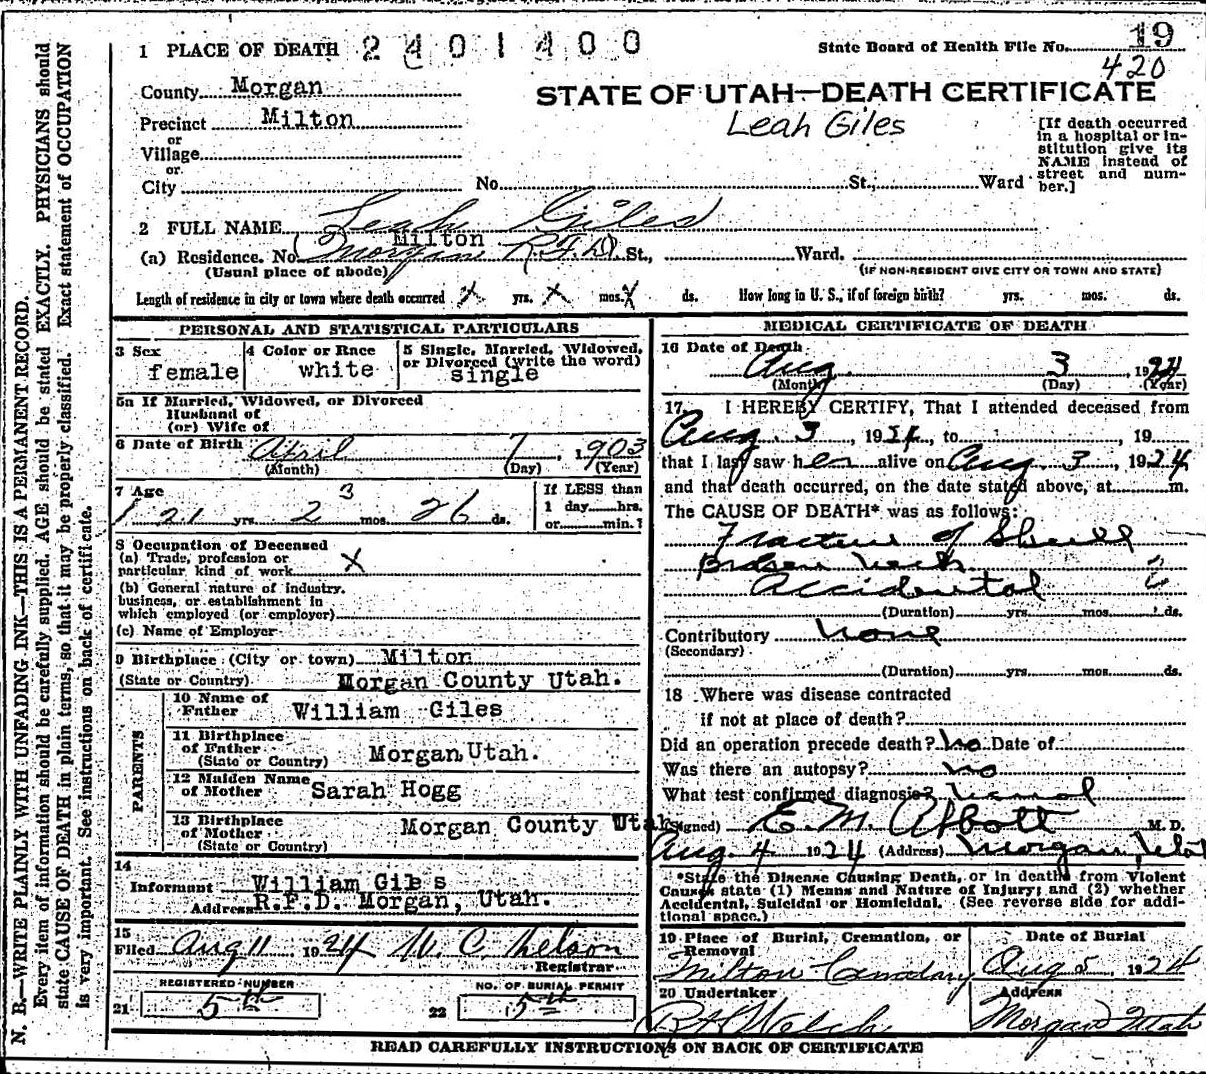 1 PLACE OF DEATH 2401400
State Board of Health File No. 19
420
County Morgan
STATE OF UTAH—DEATH CERTIFICATE
Precinct Milton
Leah Giles
or
Village
or
City
No. St., Ward
[If death occurred
in a hospital or in-
stitution give its
NAME instead of
street and num-
ber.]
2 FULL NAME Leah Giles
Milton
(a) Residence. No. (Morgan R.F.D.) St., Ward.
(Usual place of abode)
(IF NON-RESIDENT GIVE CITY OR TOWN AND STATE)
Length of residence in city or town where death occurred x yrs. x mos. x ds. How long in U. S., if of foreign birth? yrs. mos. ds.
PERSONAL AND STATISTICAL PARTICULARS
3 Sex
female
4 Color or Race
white
5 Single, Married, Widowed,
or Divorced (write the word)
single
5a If Married, Widowed, or Divorced
Husband of
(or) Wife of
6 Date of Birth April 7, 1903
(Month) (Day) (Year)
7 Age
3
21 yrs. 2 mos. 26 ds.
If LESS than
1 day hrs.
or min.?
8 Occupation of Deceased
(a) Trade, profession or
particular kind of work x
(b) General nature of industry,
business, or establishment in
which employed (or employer)
(c) Name of Employer
9 Birthplace (City or town) Milton
(State or Country) Morgan County Utah.
PARENTS
10 Name of
Father William Giles
11 Birthplace
of Father
(State or Country) Morgan Utah.
12 Maiden Name
of Mother Sarah Hogg
13 Birthplace
of Mother
(State or Country) Morgan County Utah
14
Informant William Giles
Address R.F.D. Morgan, Utah.
15
Filed Aug 11 1924 W. C. Nelson
Registrar
REGISTERED NUMBER
21 5th
NO. OF BURIAL PERMIT
22 5th
MEDICAL CERTIFICATE OF DEATH
16 Date of Death
Aug. 3, 1924
(Month) (Day) (Year)
17. I HEREBY CERTIFY, That I attended deceased from
Aug. 3, 1924, to , 19
that I last saw her alive on Aug. 3, 1924
and that death occurred, on the date stated above, at m.
The CAUSE OF DEATH* was as follows:
Fracture of Skull
Broken neck
Accidental
(Duration) yrs. mos. ds.
Contributory None
(Secondary)
(Duration) yrs. mos. ds.
18 Where was disease contracted
if not at place of death?
Did an operation precede death? No Date of
Was there an autopsy? no
What test confirmed diagnosis?
(Signed) E. M. Abbott M. D.
Aug. 4 1924 (Address) Morgan, Utah
*State the Disease Causing Death, or in deaths from Violent
Causes state (1) Means and Nature of Injury; and (2) whether
Accidental, Suicidal or Homicidal. (See reverse side for addi-
tional space.)
19 Place of Burial, Cremation, or
Removal
Date of Burial
Milton Aug 5 1924
20 Undertaker
Address
Welch Morgan Utah
READ CAREFULLY INSTRUCTIONS ON BACK OF CERTIFICATE
N. B.—WRITE PLAINLY WITH UNFADING INK—THIS IS A PERMANENT RECORD.
Every item of information should be carefully supplied. AGE should be stated EXACTLY. PHYSICIANS should
state CAUSE OF DEATH in plain terms, so that it may be properly classified. Exact statement of OCCUPATION
is very important. See instructions on back of certificate.